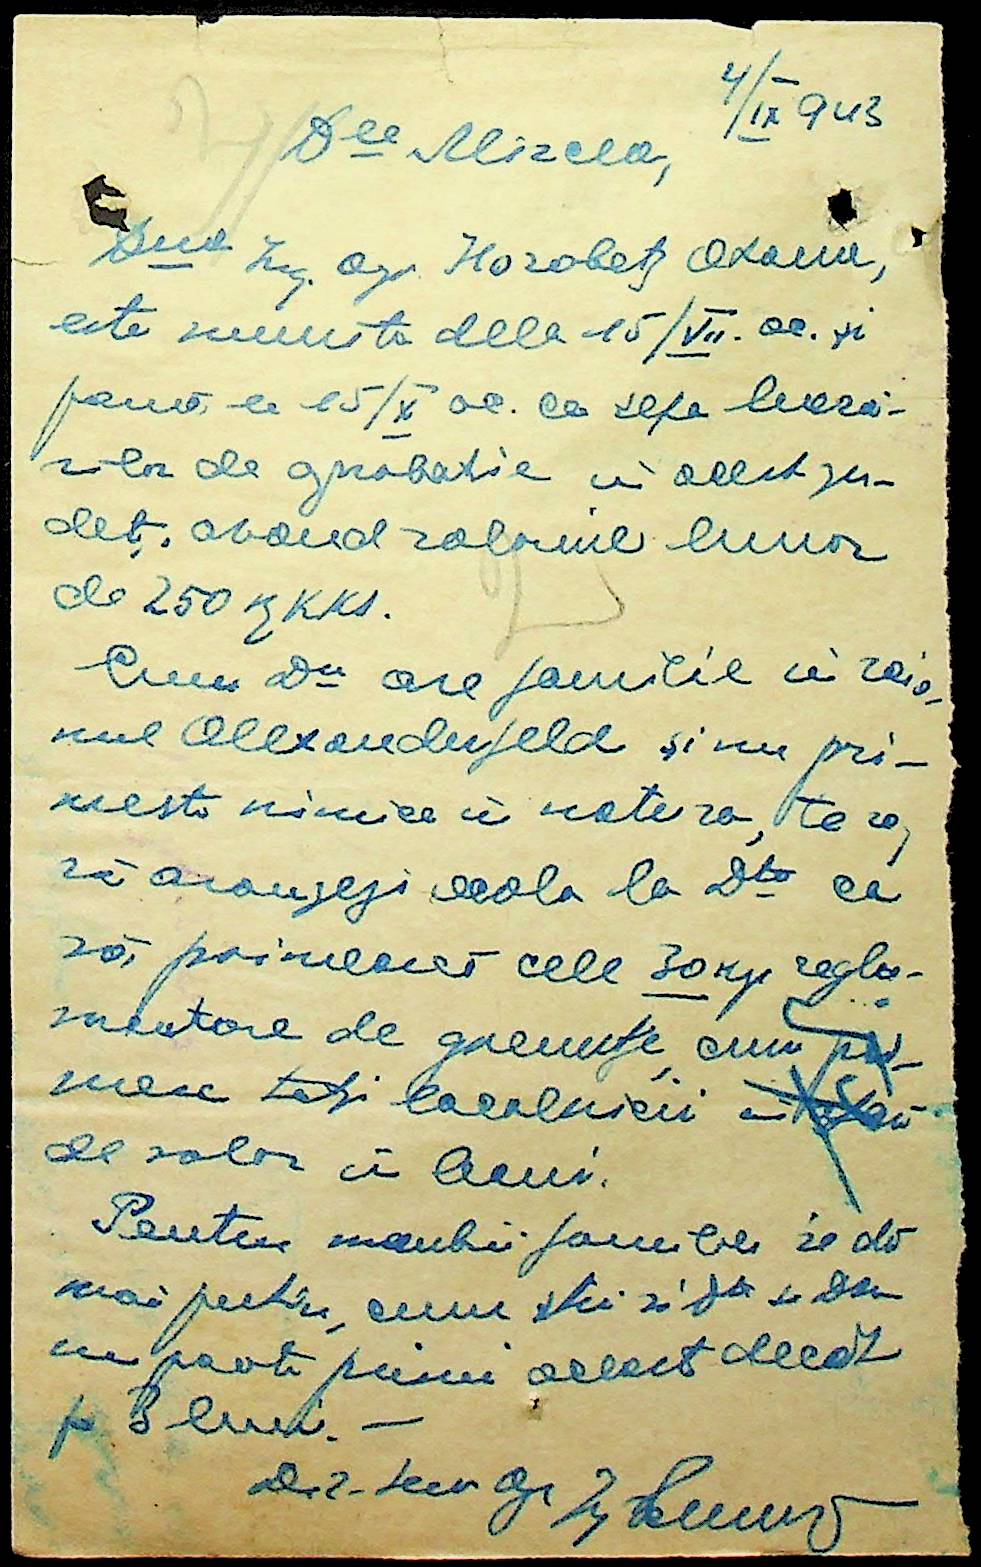 4/IX 943
Dle Mircea,
Dna Ing. agr. Horobetz Oxana,
este numita dela 15/VII. ac. și
pană la 15/X ac. ca șefa lucră-
rilor de aprobatie in acest ju-
deț, avand salariul lunar
de 250 KKS.
Cum Dna are familie in raio-
nul Alexanderfeld și nu pri-
meste nimica in natura, te rog
să aranjezi acola la Dta ca
să primeasca cele 30 kgr regle-
mentare de graunțe, cum pri-
mesc toți localnicii in
de salar in bani.
Pentru membrii familiei se dă
mai putin, cum știi si Dta si Dna
nu poate primi aceast decât
pe 3 luni. —
Dir.